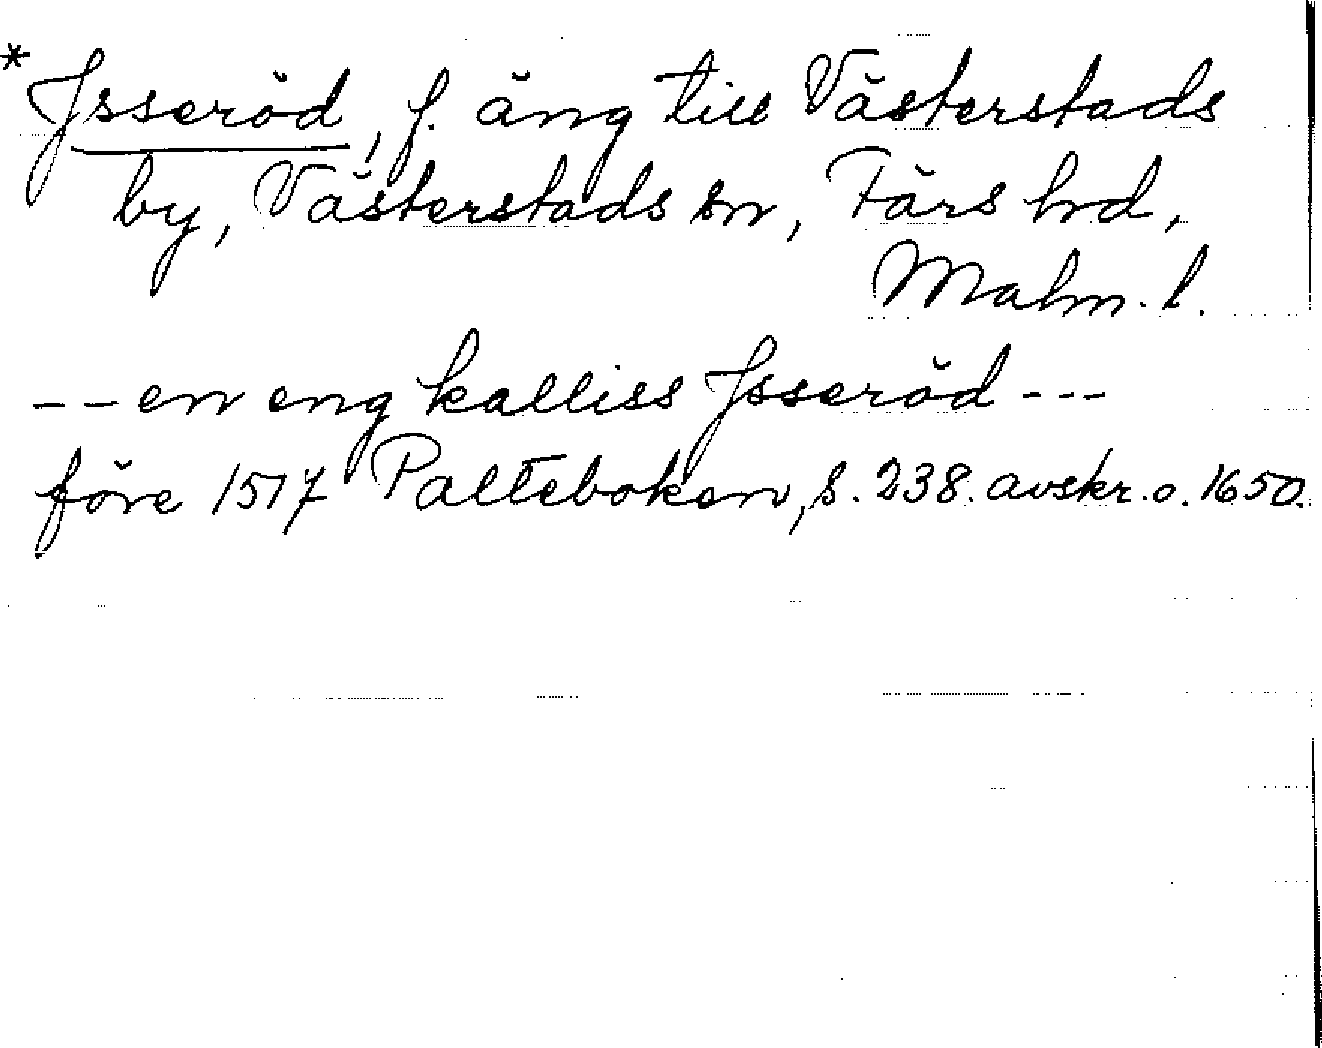 * Jsseröd, f. äng till Västerstads
by, Västerstads sn, Färs hd,
Malm. l.
-- en eng kalliss Jsseröd ---
före 1517 Palteboken, s. 238. avskr. o. 1650.